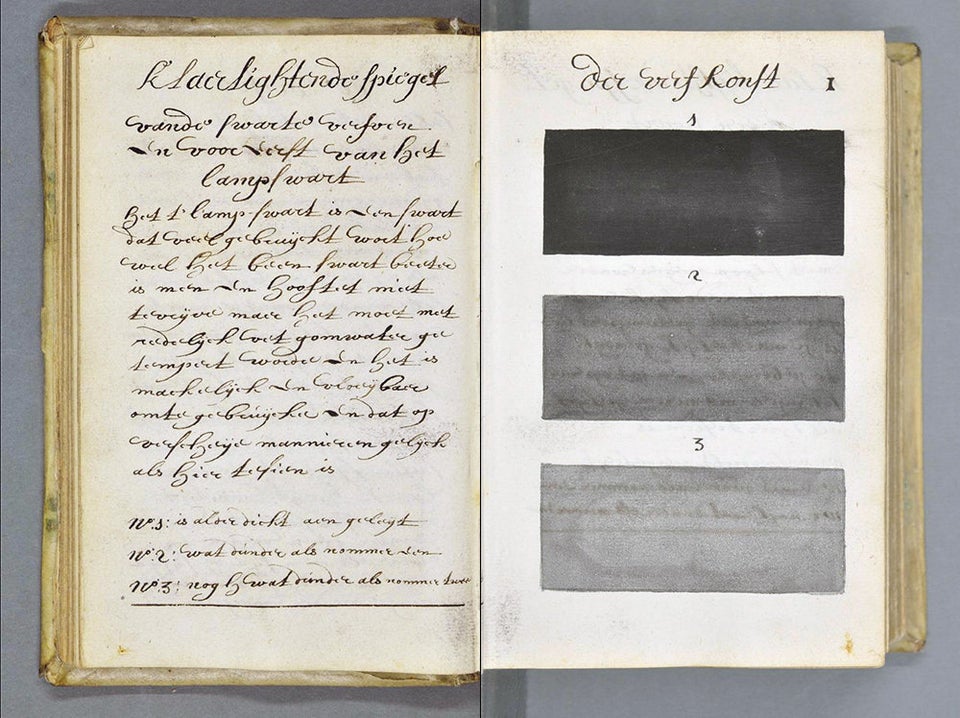 Klaerlightende spiegel
vande swarte verfven
en voor eerst van het
lampswart
het t' lamp-swart is een swart
dat veel gebruijckt wort hoe
wel het been swart beeter
is men en hooftet niet
te vrijve maer het moet met
redelijck vet gomwater ge
tempert worde en het is
mackelijck en vloeijbaer
om te gebruijcke en dat op
verscheije mannieren gelijck
als hier te sien is
No. 1: is alder dickt aen geleijt
No. 2: wat dunder als nommer een
No. 3: nog h wat dunder als nommer twee
der verf konst 1
1
2
3